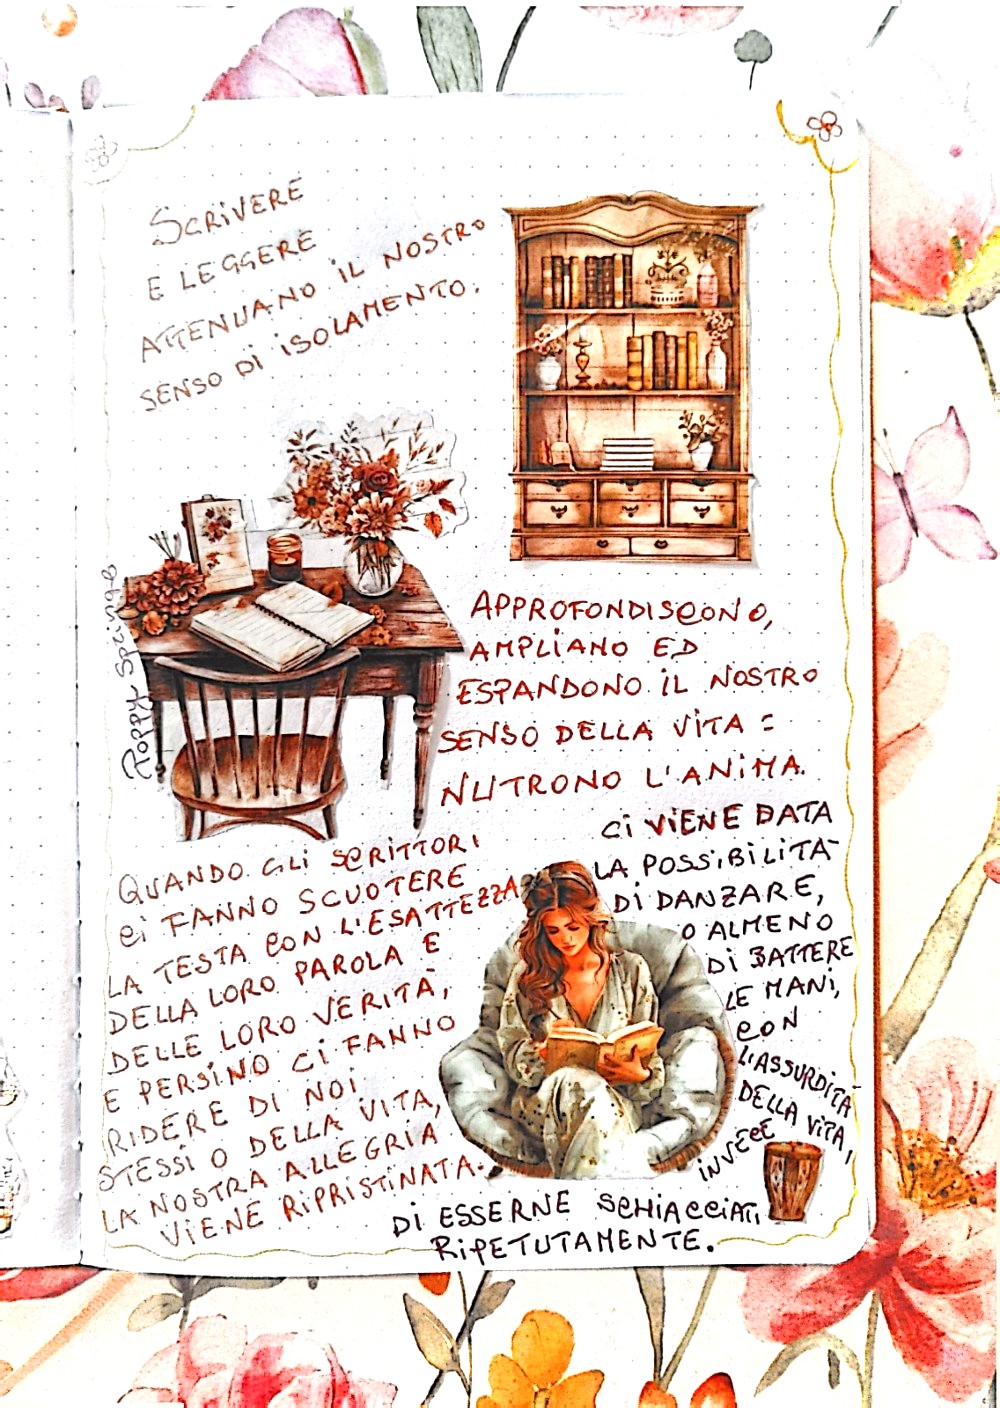 SCRIVERE
E LEGGERE
ATTENUANO IL NOSTRO
SENSO DI ISOLAMENTO.
APPROFONDISCONO,
AMPLIANO ED
ESPANDONO IL NOSTRO
SENSO DELLA VITA :
NUTRONO L'ANIMA.
QUANDO GLI SCRITTORI
CI FANNO SCUOTERE
LA TESTA CON L'ESATTEZZA
DELLA LORO PAROLA E
DELLE LORO VERITÀ,
E PERSINO CI FANNO
RIDERE DI NOI
STESSI O DELLA VITA,
LA NOSTRA ALLEGRIA
VIENE RIPRISTINATA.
CI VIENE DATA
LA POSSIBILITÀ
DI DANZARE,
O ALMENO
DI BATTERE
LE MANI,
CON
L'ASSURDITÀ
DELLA VITA,
INVECE
DI ESSERNE SCHIACCIATI
RIPETUTAMENTE.
Poppy Spring